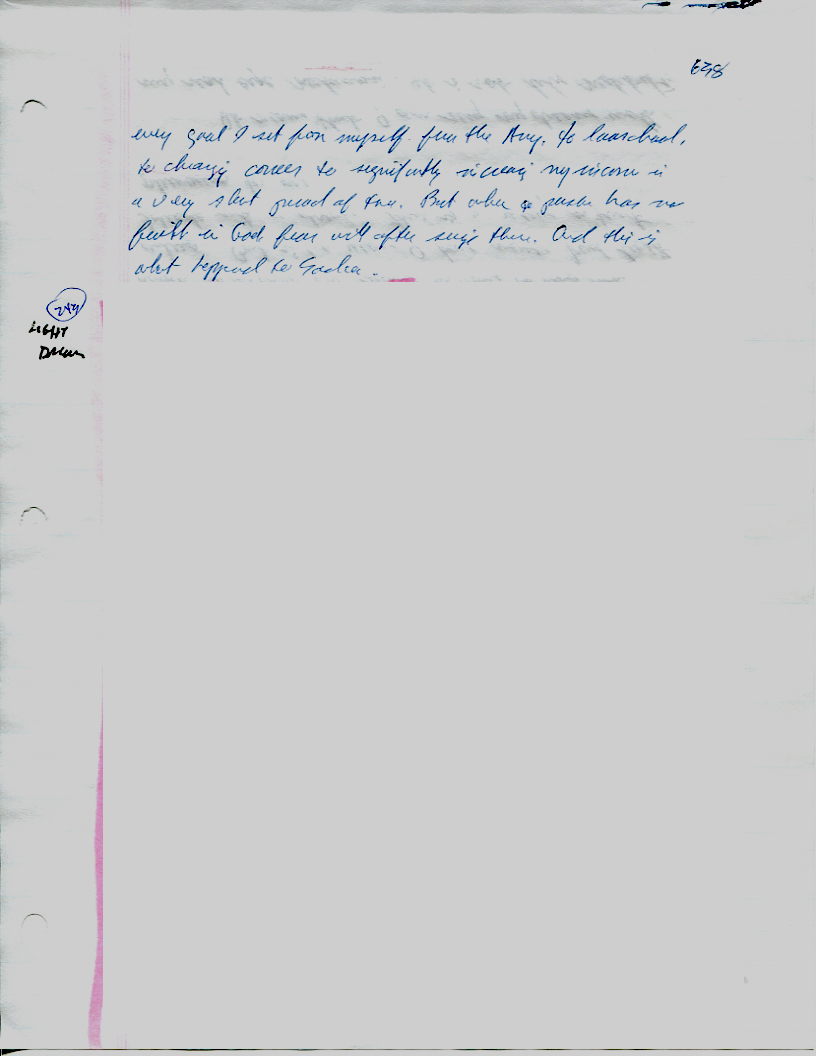 E38
every goal I set for myself. from the Army, to law school,
to changing careers to significantly increasing my income in
a very short period of time. But when a person has no
faith in God fear will often seize them. And this is
what happened to
LIGHT